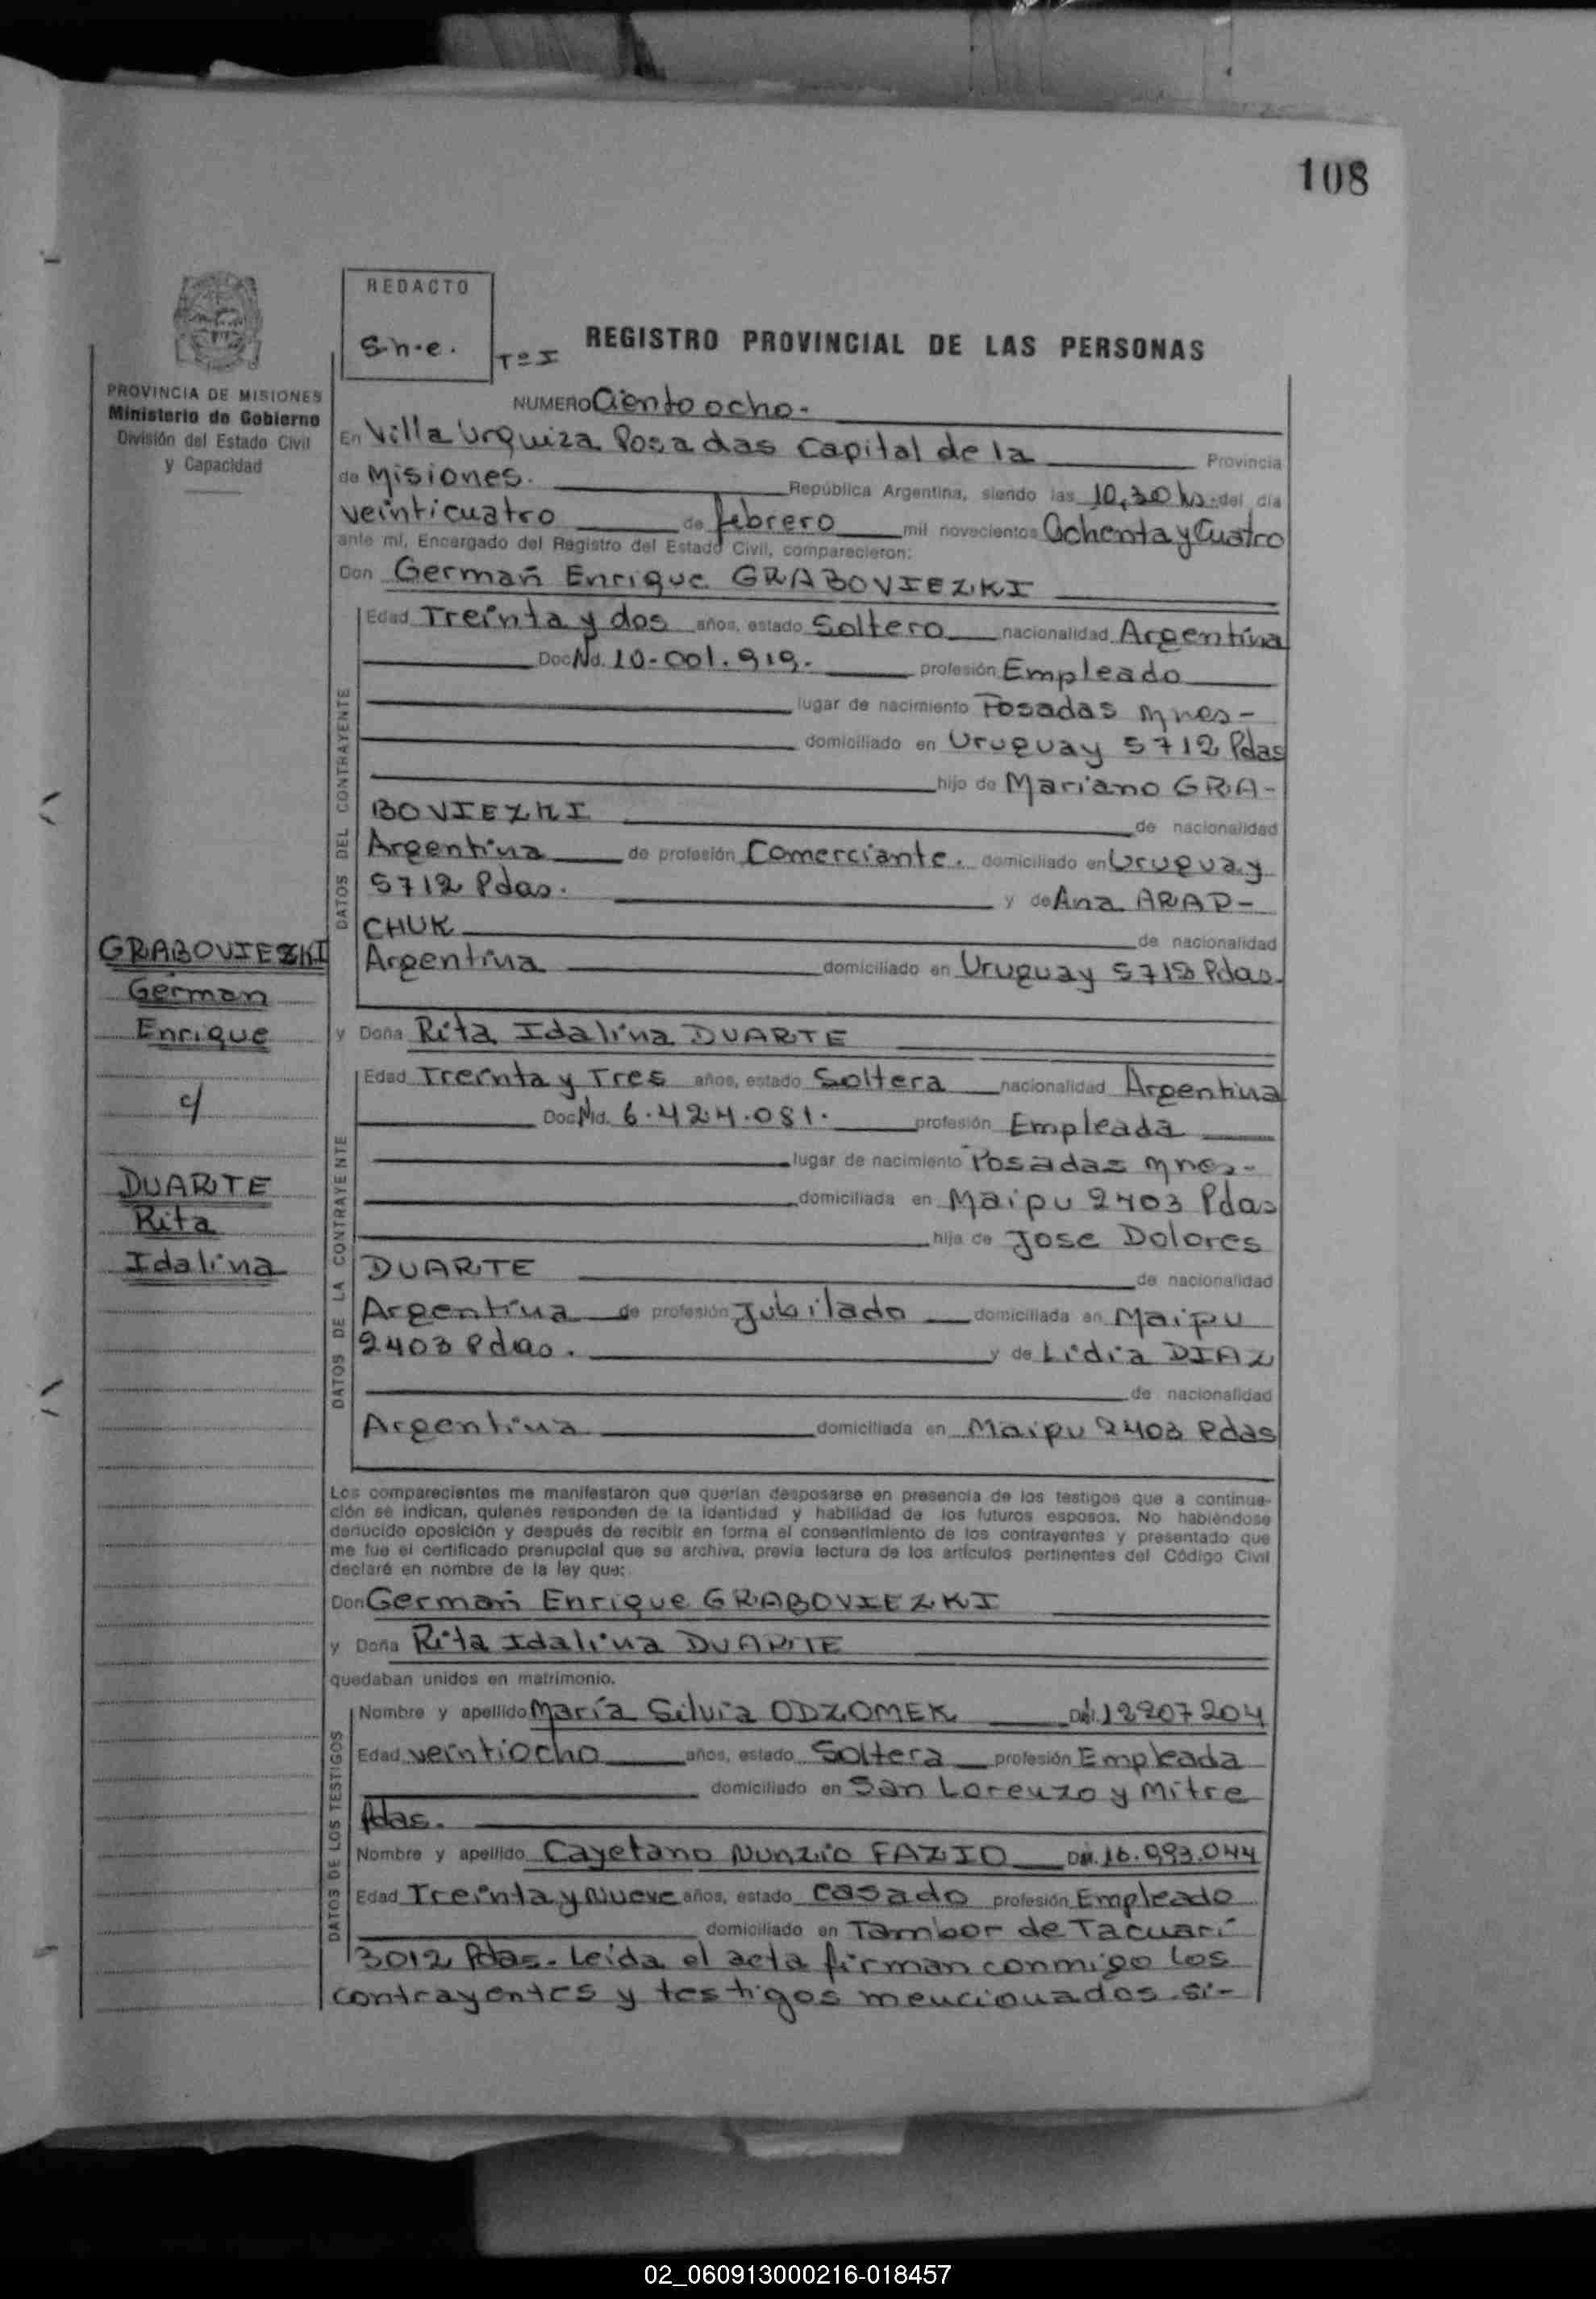 108
REDACTO
S.h.e.
Tº I
REGISTRO PROVINCIAL DE LAS PERSONAS
PROVINCIA DE MISIONES
Ministerio de Gobierno
División del Estado Civil
y Capacidad
NUMERO Ciento ocho.
En Villa Urquiza Posadas Capital de la Provincia
de Misiones. República Argentina, siendo las 10,30 hs. del día
veinticuatro de febrero mil novecientos Ochenta y Cuatro
ante mí, Encargado del Registro del Estado Civil, comparecieron:
Don German Enrique GRABOVIEZKI
DATOS DEL CONTRAYENTE
Edad Treinta y dos años, estado Soltero nacionalidad Argentina
Doc. Nd. 10.001.919. profesión Empleado
lugar de nacimiento Posadas Mnes-
domiciliado en Uruguay 5712 Pdas
hijo de Mariano GRA-
BOVIEZKI de nacionalidad
Argentina de profesión Comerciante. domiciliado en Uruguay
5712 Pdas. y de Ana ARAP-
CHUK de nacionalidad
Argentina domiciliado en Uruguay 5712 Pdas.
GRABOVIEZKI
German
Enrique
c/
DUARTE
Rita
Idalina
y Doña Rita Idalina DUARTE
DATOS DE LA CONTRAYENTE
Edad Treinta y Tres años, estado Soltera nacionalidad Argentina
Doc. Nd. 6.424.081. profesión Empleada
lugar de nacimiento Posadas Mnes-
domiciliada en Maipu 2403 Pdas
hija de Jose Dolores
DUARTE de nacionalidad
Argentina de profesión Jubilado domiciliada en Maipu
2403 Pdas. y de Lidia DIAZ
de nacionalidad
Argentina domiciliada en Maipu 2403 Pdas
Los comparecientes me manifestaron que querían desposarse en presencia de los testigos que a continua-
ción se indican, quienes responden de la identidad y habilidad de los futuros esposos. No habiéndose
denucido oposición y después de recibir en forma el consentimiento de los contrayentes y presentado que
me fue el certificado prenupcial que se archiva, previa lectura de los artículos pertinentes del Código Civil
declaré en nombre de la ley que:
Don German Enrique GRABOVIEZKI
y Doña Rita Idalina DUARTE
quedaban unidos en matrimonio.
DATOS DE LOS TESTIGOS
Nombre y apellido María Silvia ODZOMEK 12207204
Edad veintiocho años, estado Soltera profesión Empleada
domiciliado en San Lorenzo y Mitre
Pdas.
Nombre y apellido Cayetano Nunzio FAZIO 16.993.044
Edad Treinta y Nueve años, estado casado profesión Empleado
domiciliado en Tambor de Tacuarí
3012 Pdas. Leída el acta firman conmigo los
contrayentes y testigos mencionados.si-
02_060913000216-018457